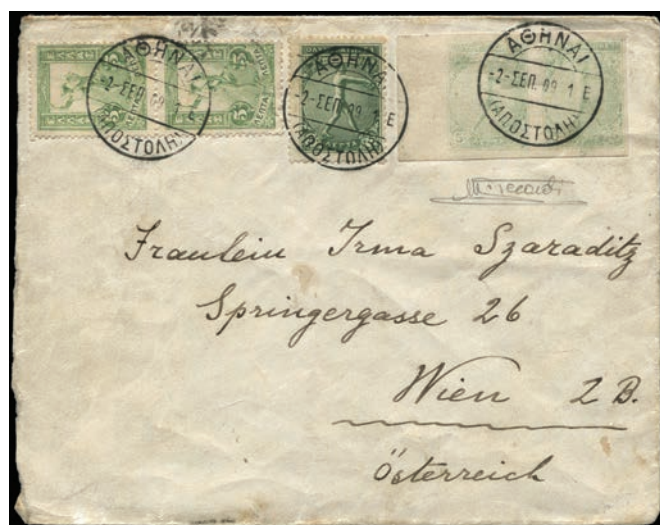 ΑΘΗΝΑΙ
-2-ΣΕΠ. 09 1 Ε
(ΑΠΟΣΤΟΛΗ)
ΑΘΗΝΑΙ
-2-ΣΕΠ. 09 1 Ε
(ΑΠΟΣΤΟΛΗ)
ΑΘΗΝΑΙ
-2-ΣΕΠ. 09 1 Ε
(ΑΠΟΣΤΟΛΗ)
ΕΛΛΑΣ
ΛΕΠΤΑ
Fraulein Irma Szaraditz
Springergasse 26
Wien 2 B.
Österreich